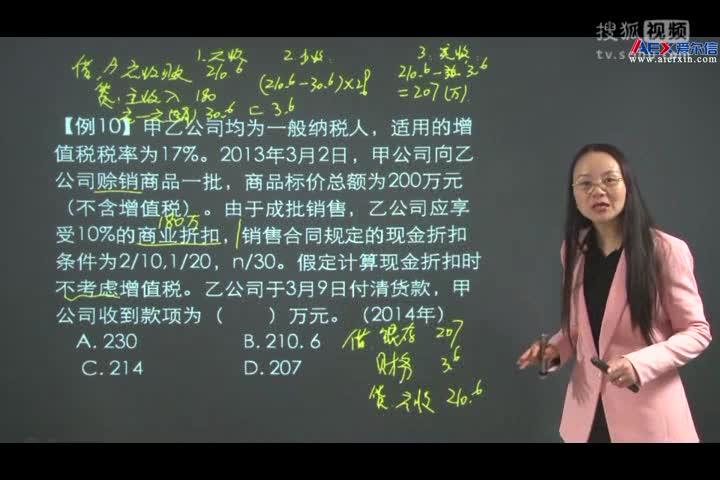 搜狐视频
tv.sohu.com
AEX爱尔信
www.aierxin.com
1.应收 2.少收 3.实收
借:应收账款 210.6 (210.6-30.6)×2% 210.6-3.6
贷:主收入 180 =3.6 =207(万)
30.6
【例10】甲乙公司均为一般纳税人，适用的增
值税税率为17%。2013年3月2日，甲公司向乙
公司赊销商品一批，商品标价总额为200万元
（不含增值税）。由于成批销售，乙公司应享
180万
受10%的商业折扣，销售合同规定的现金折扣
条件为2/10,1/20，n/30。假定计算现金折扣时
不考虑增值税。乙公司于3月9日付清货款，甲
公司收到款项为（ ）万元。（2014年）
A. 230 B. 210. 6
C. 214 D. 207
借 银存 207
财务 3.6
贷 应收 210.6